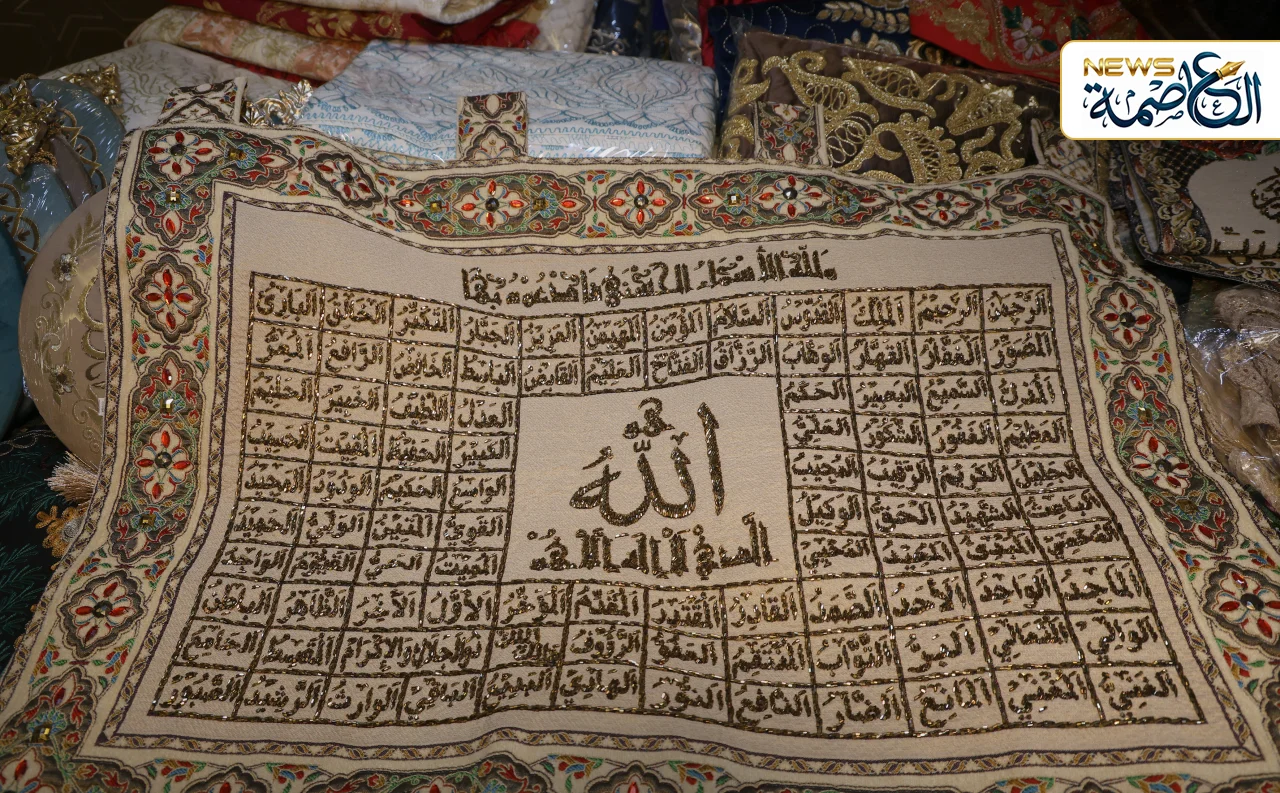 NEWS
العاصمة
ولله الأسماء الحسنى فادعوه بها
الرحمن الرحيم الملك القدوس السلام المؤمن المهيمن العزيز الجبار المتكبر الخالق البارئ
المصور الغفار القهار الوهاب الرزاق الفتاح العليم القابض الباسط الخافض الرافع المعز
المذل السميع البصير الحكم
العدل اللطيف الخبير الحليم
هو
الله
العظيم الغفور الشكور العلي
الكبير الحفيظ المقيت الحسيب
الجليل الكريم الرقيب المجيب
الواسع الحكيم الودود المجيد
الباعث الشهيد الحق الوكيل
القوي المتين الولي الحميد
الذي لا إله إلا هو
المحصي المبدئ المعيد المحيي
المميت الحي القيوم الواجد
الماجد الواحد الأحد الصمد القادر المقتدر المقدم المؤخر الأول الآخر الظاهر الباطن
الوالي المتعالي البر التواب المنتقم العفو الرؤوف مالك الملك ذو الجلال والإكرام المقسط الجامع
الغني المغني المانع الضار النافع النور الهادي البديع الباقي الوارث الرشيد الصبور